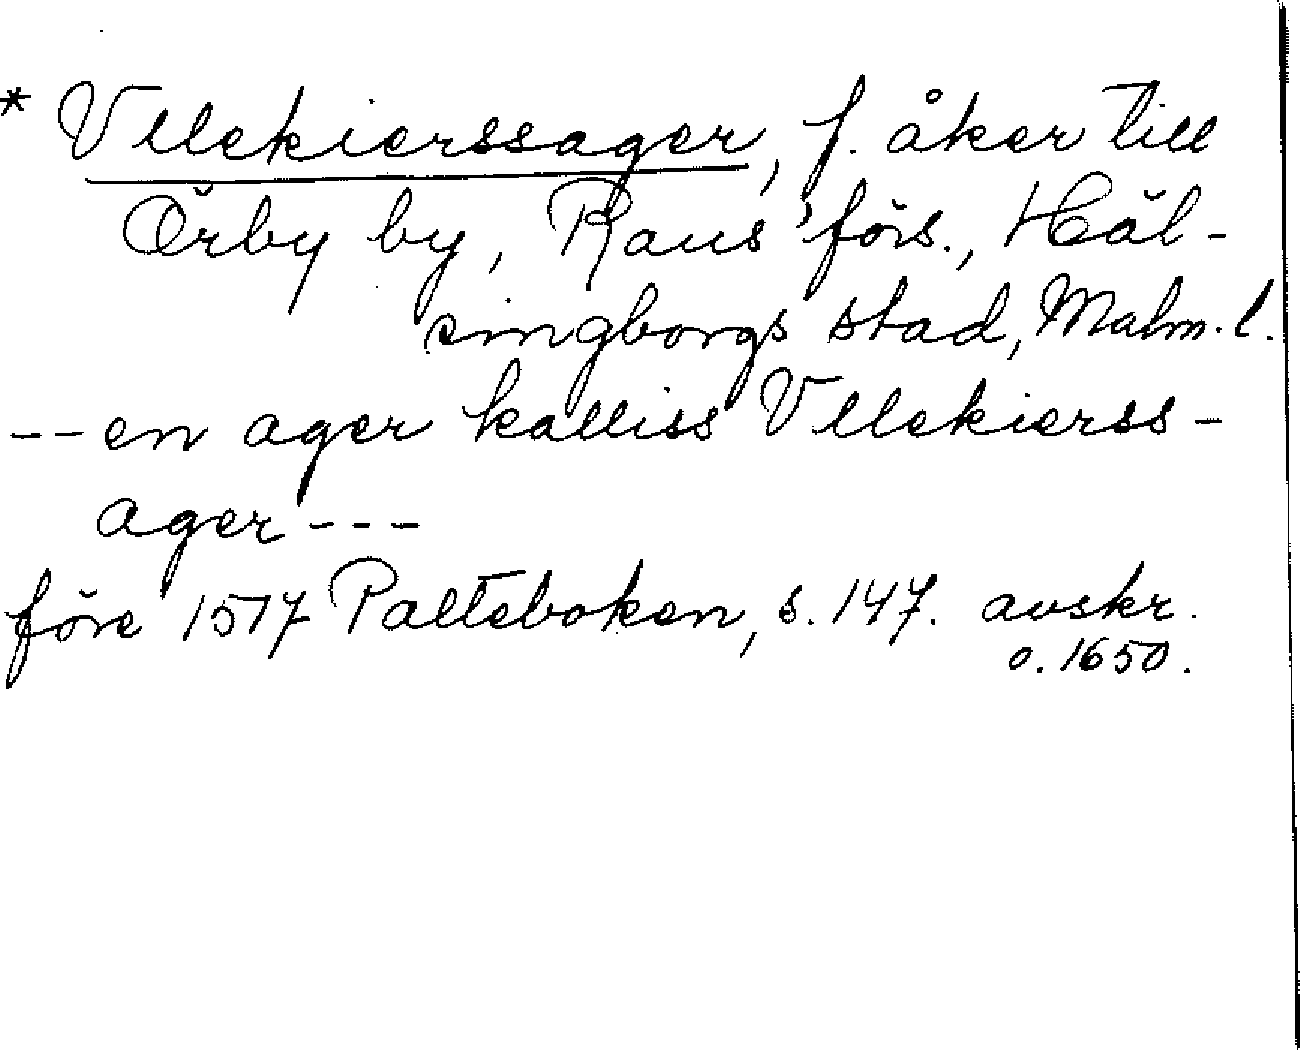 * Vllekierssager, f. åker till
Örby by, Raus förs., Häl-
singborgs stad, Malm. l.
-- en ager kalliss Vllekierss-
ager ---
före 1517 Palteboken, s. 147. avskr.
o. 1650.